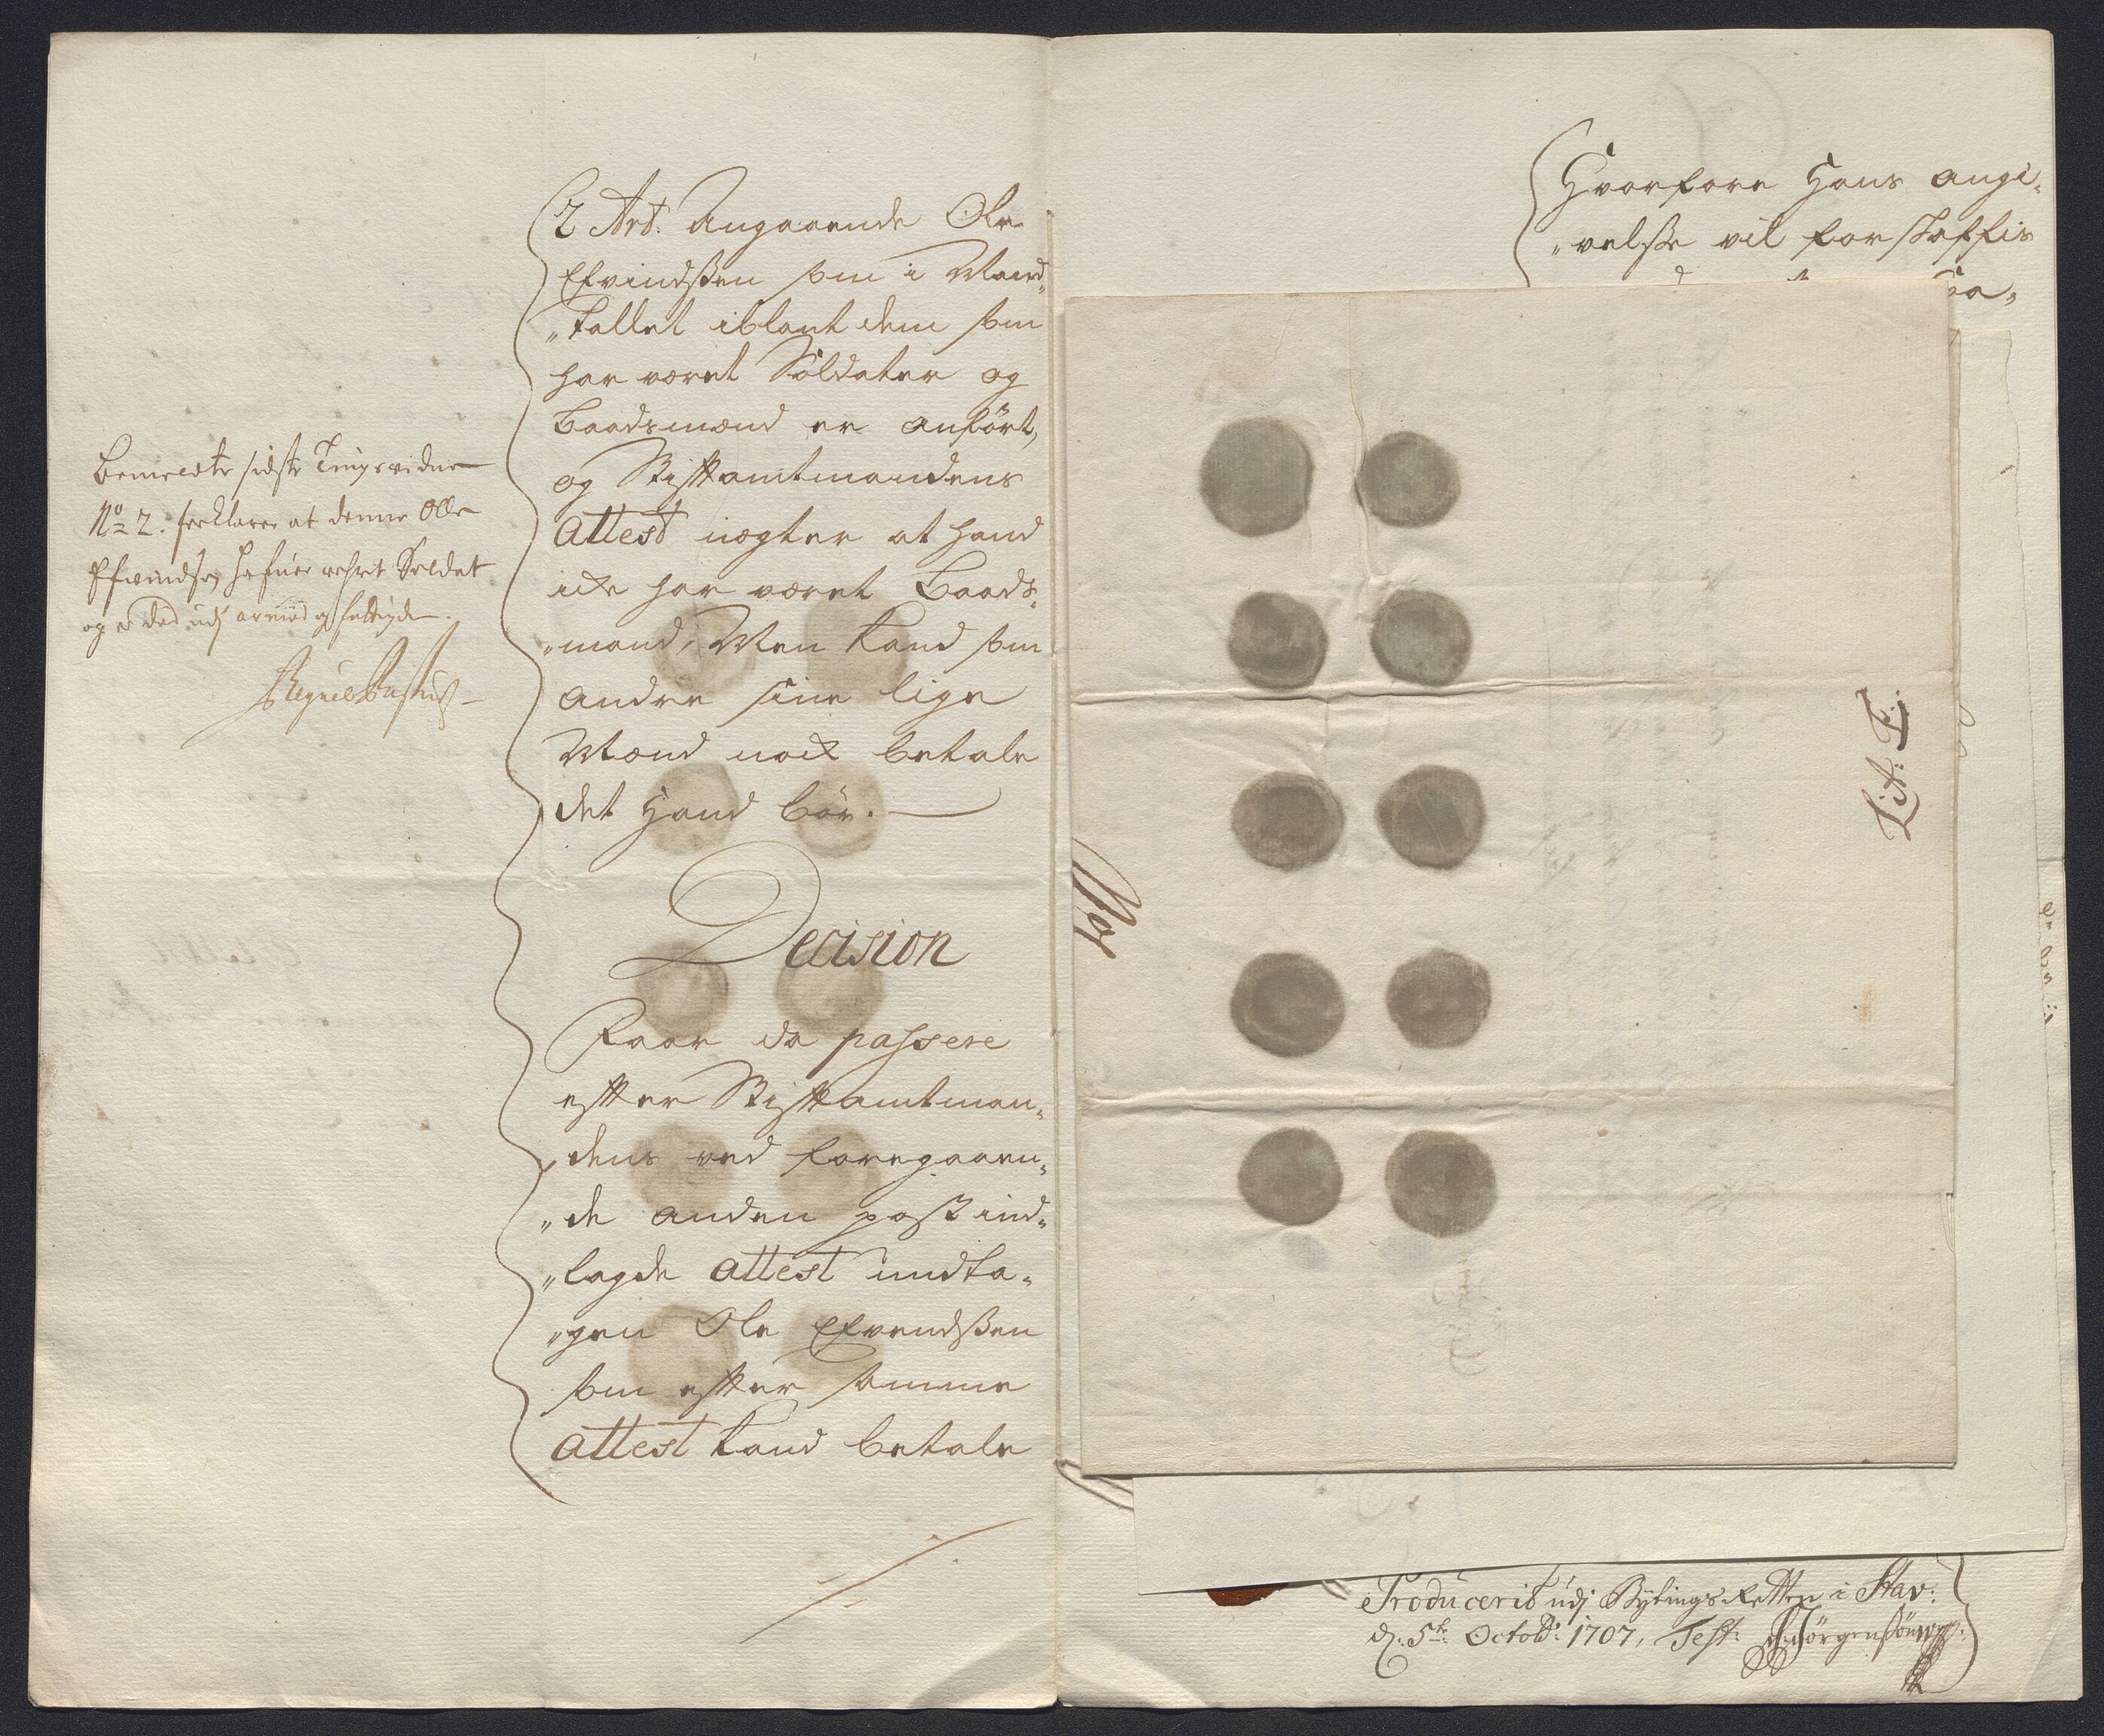 Bemeldte sidste Tingsvidne
No 2. forklarer at denne Olle
Efvindsen hafuer wehrit Soldat
og er død udj armod og fattigde.
2 Art: Angaaende Ole
Efvindßen som i Mand„
„tallet iblant dem som
har været Soldater og
Baadsmænd er anført,
og Stiftamtmandens
Attest nægter at hand
icke har været Baads„
„mand, Men kand som
andre sine lige
Mænd nock betale
det Hand bør.
Decision
Faar da passere
efter Stiftamtman„
„dens ved foregaaen„
„de anden post ind„
„lagde attest undta„
„gen Ole Efvendßen
som efter samme
attest kand betale
Hvorfore Hans angi„
„velße vil forskaffis
Lit: F:
Producerit udj Bytings Retten i Stav:
d: 5te Octob: 1707, Test: Jörgensön mpp: